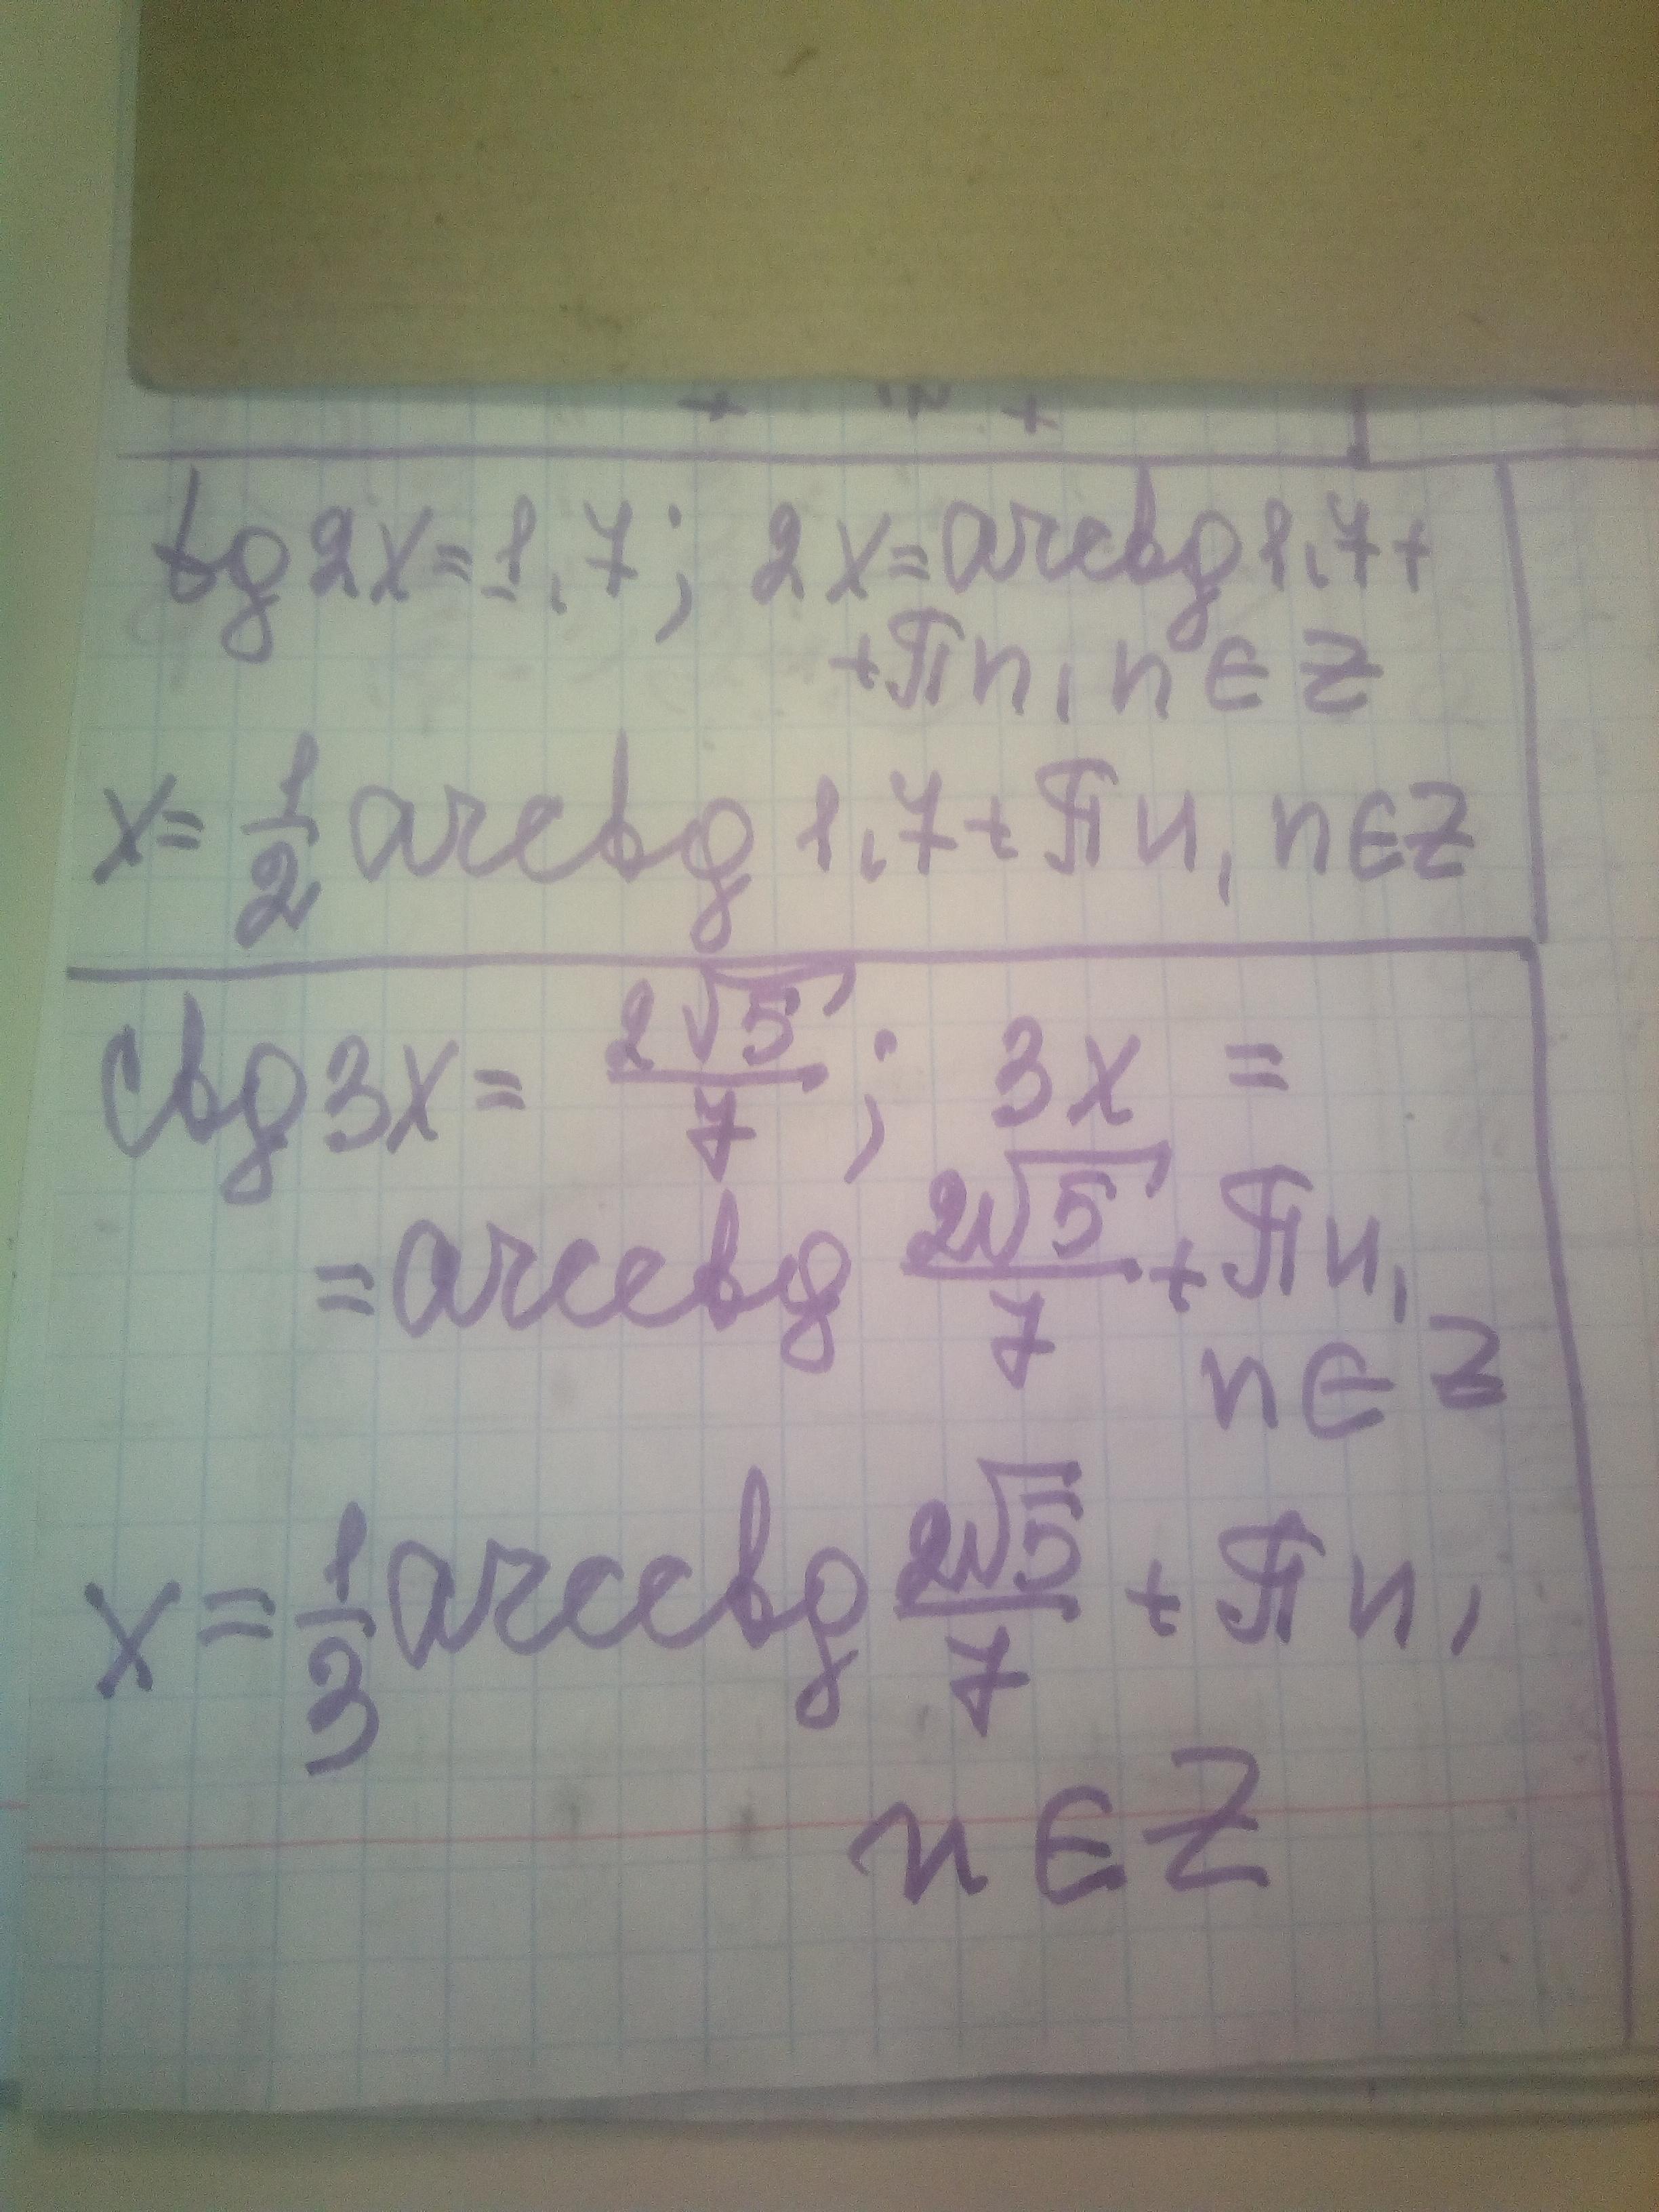 tg 2x = 1,7; 2x = arctg 1,7 +
+ πn, n ∈ Z
x = 1/2 arctg 1,7 + πn, n ∈ Z
ctg 3x = 2√5/7; 3x =
= arcctg 2√5/7 + πn,
n ∈ Z
x = 1/3 arcctg 2√5/7 + πn,
n ∈ Z